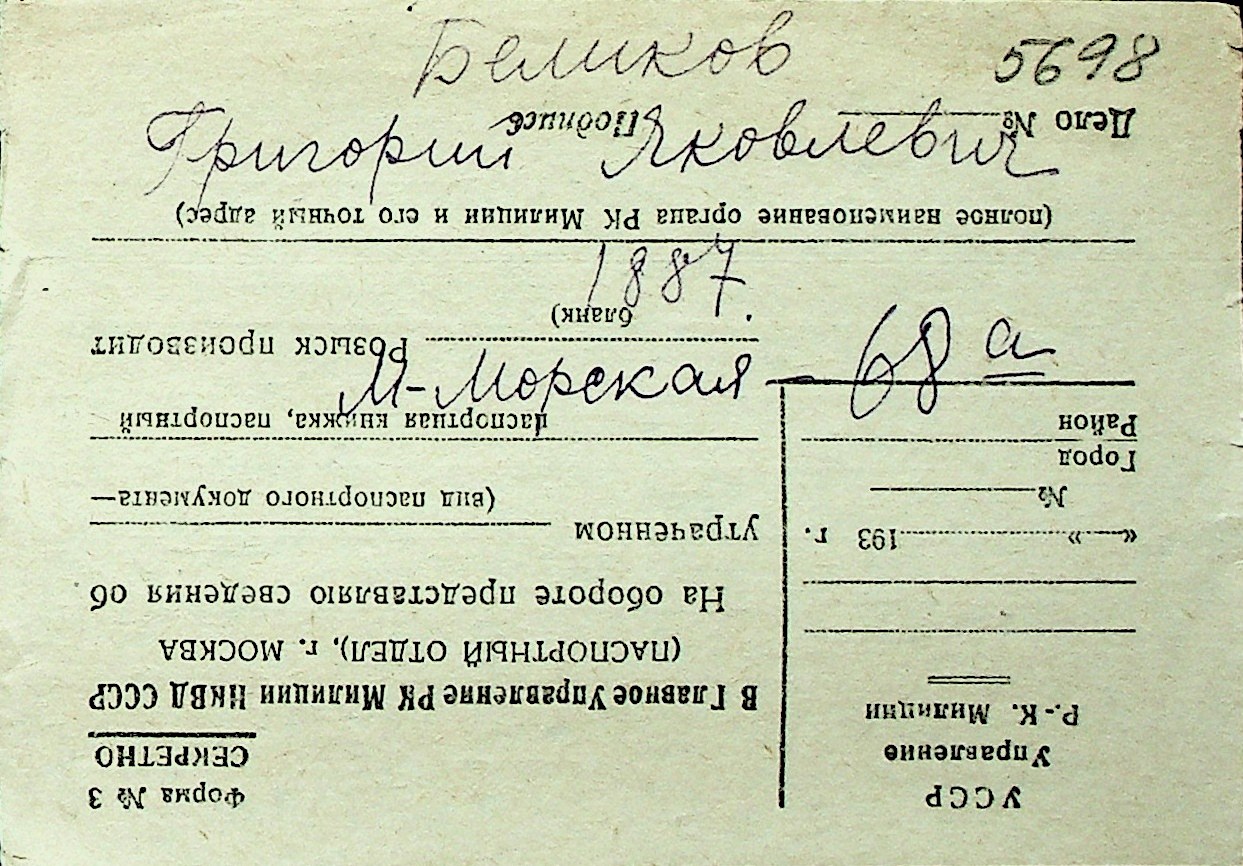 Беликов 5698
Григорий Яковлевич
1887.
М-Морская — 68 а
Форма № 3
СЕКРЕТНО
УССР
Управление
Р.-К. Милиции
«  » 193 г.
№
Город
Район
В Главное Управление РК Милиции НКВД СССР
(ПАСПОРТНЫЙ ОТДЕЛ), г. МОСКВА
На обороте представляю сведения об
утраченном
(вид паспортного документа—
паспортная книжка, паспортный
бланк)
Розыск производит
(полное наименование органа РК Милиции и его точный адрес)
Дело № Подпись